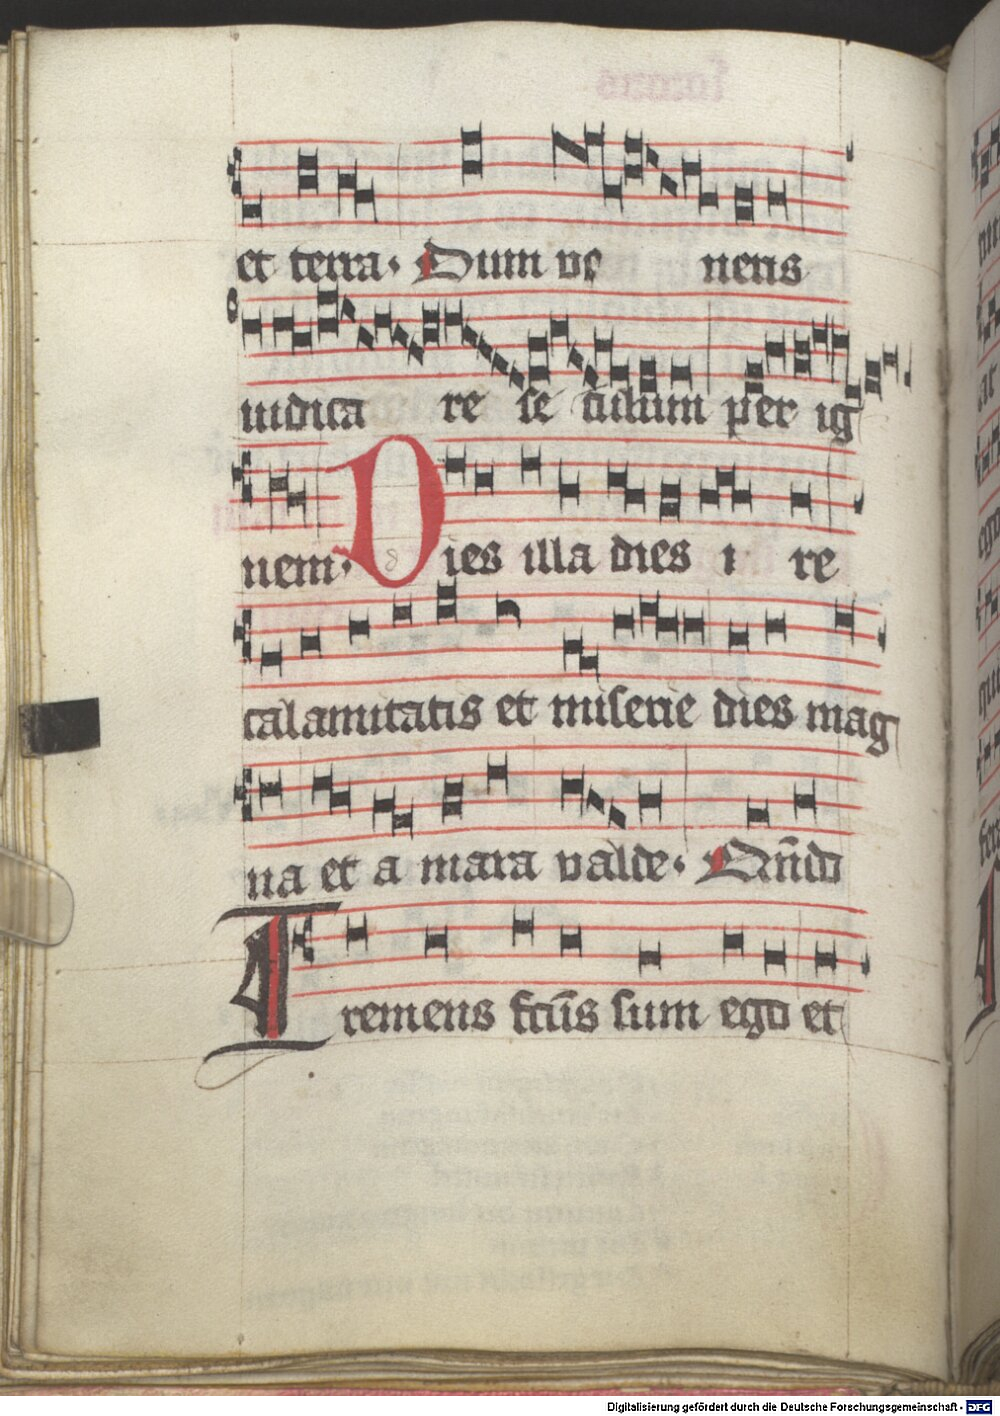 et terra· Dum ve neris
iudica re se culum per ig
nem· Dies illa dies i re
calamitatis et miserie dies mag
na et a mara valde· Qn̄do
Tremens fcūs sum ego et
Digitalisierung gefördert durch die Deutsche Forschungsgemeinschaft - DFG